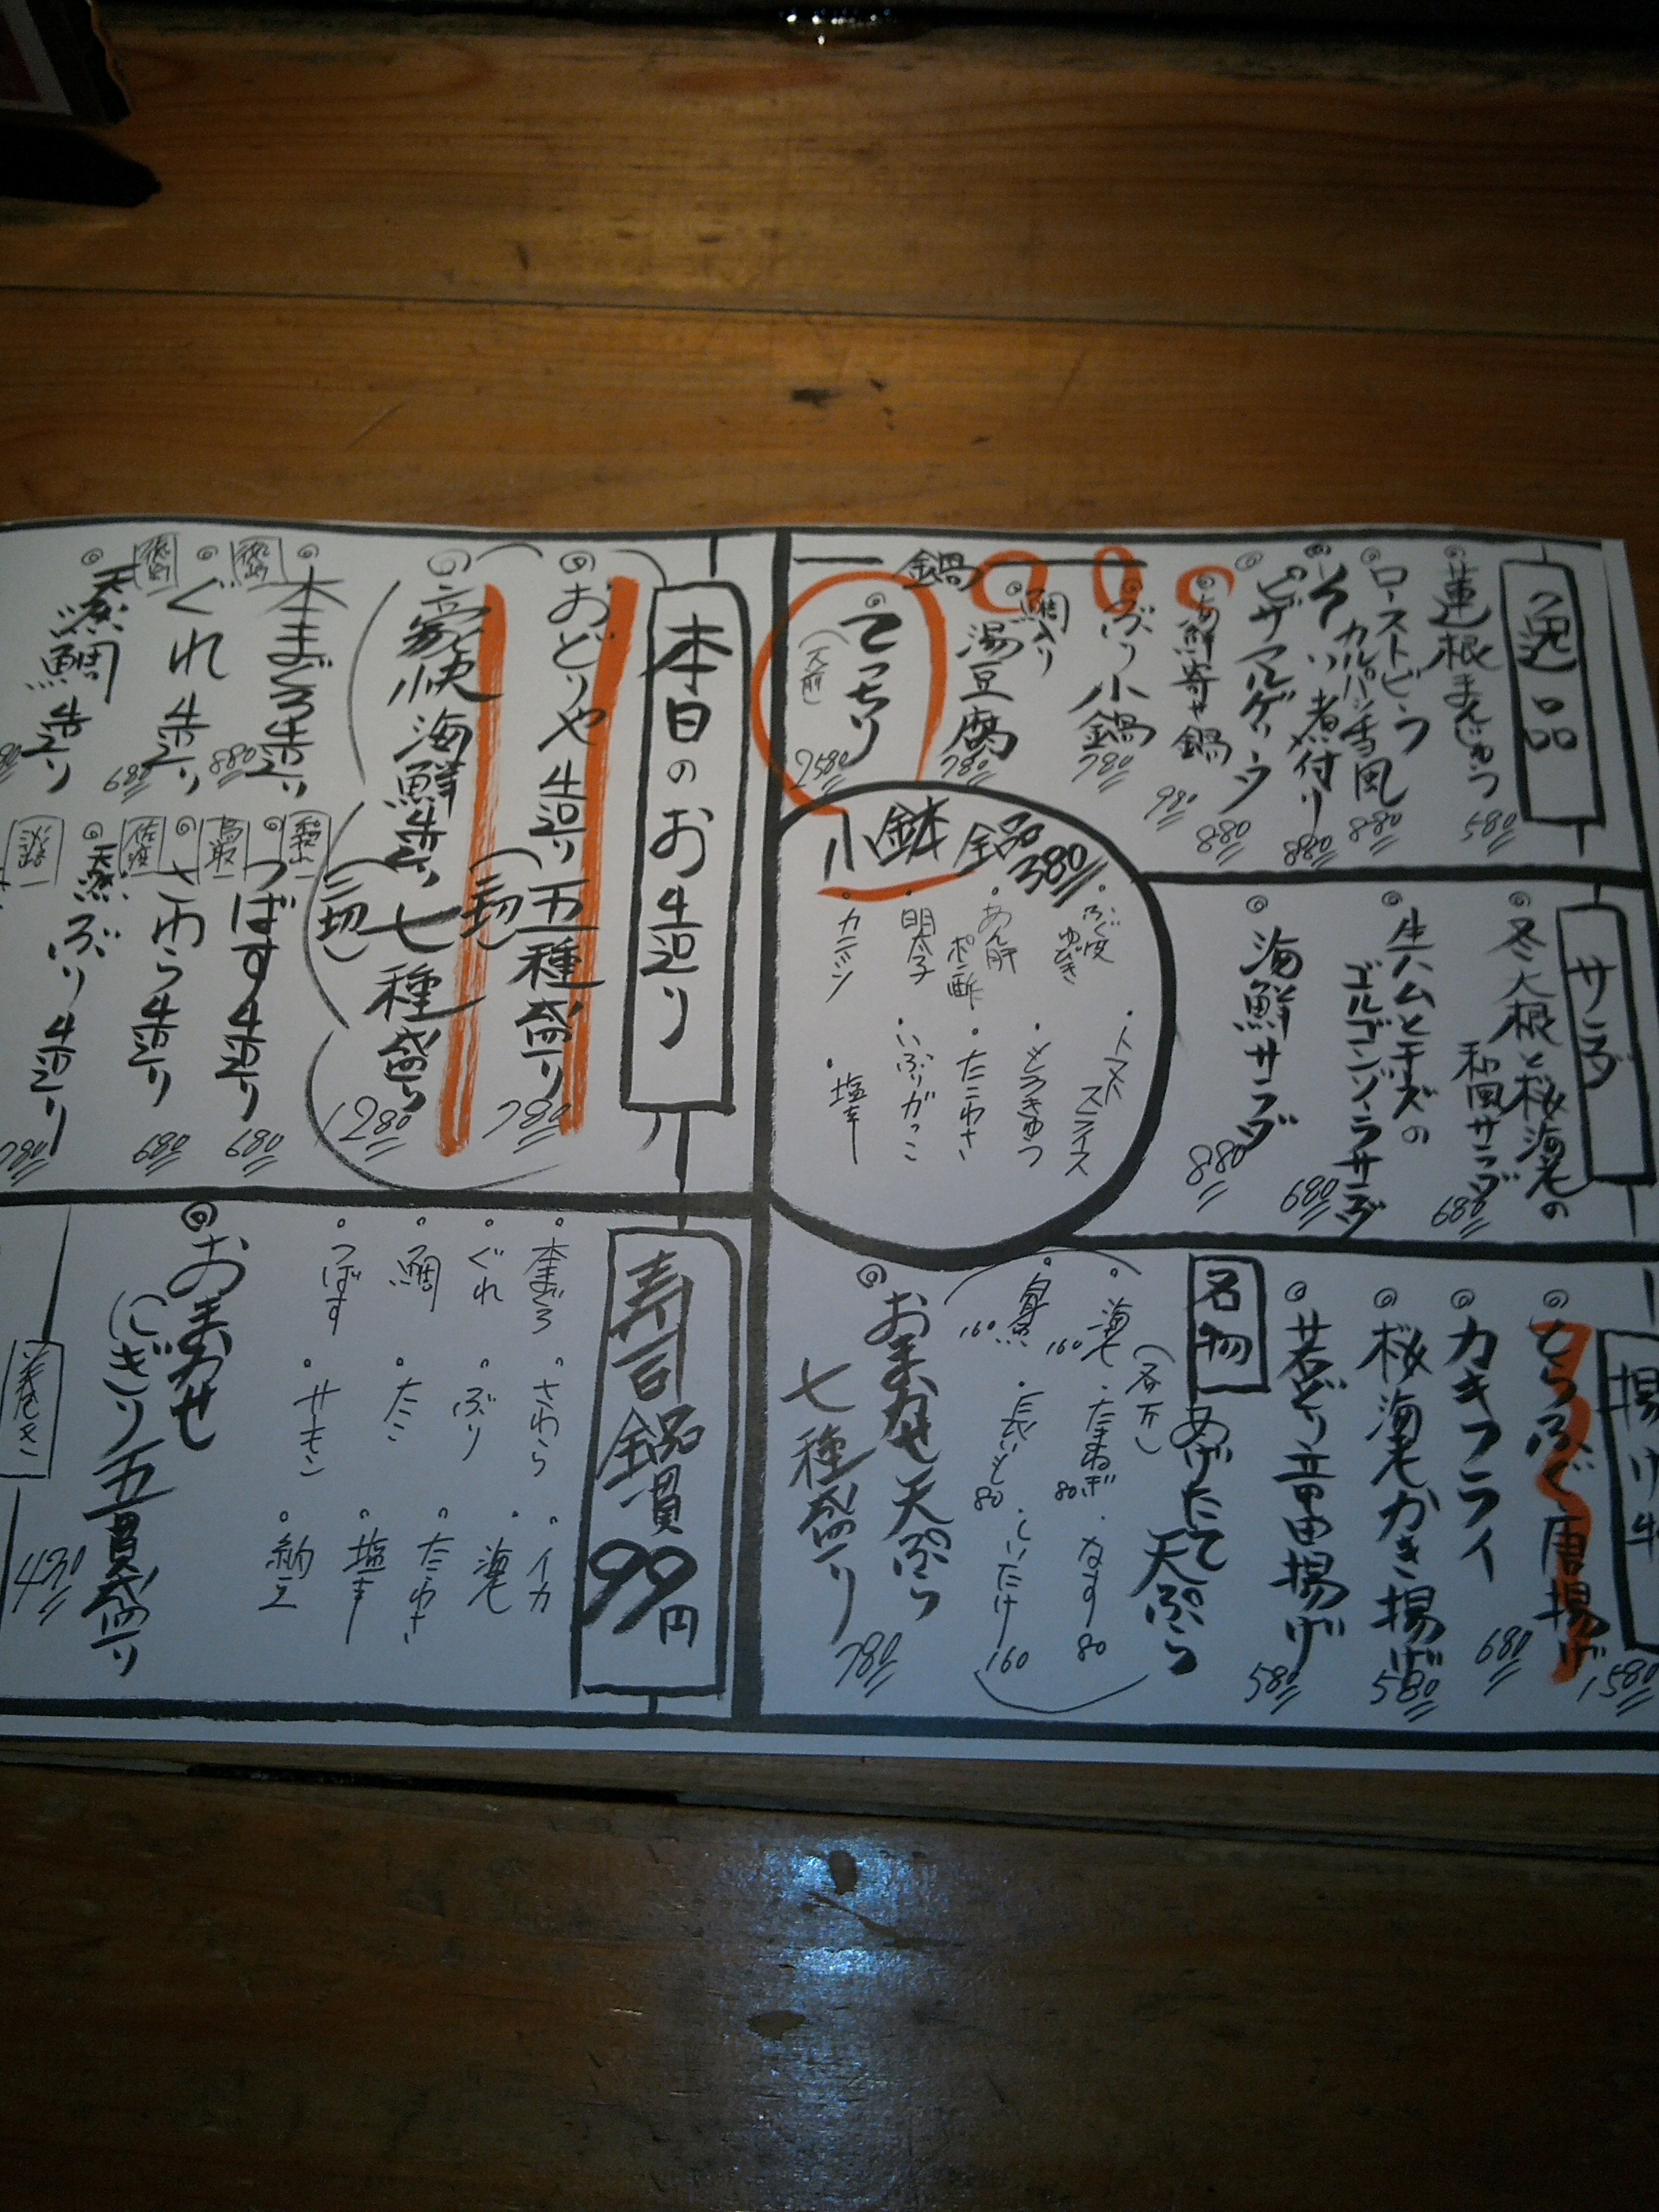 逸品
蓮根まんじゅう
580
ローストビーフ
カルパッチョ風
880
煮付り
880
ピザマルゲリータ
880
海鮮寄せ鍋
980
ぶり小鍋
780
鯛入り
湯豆腐
780
鍋
てっちり
2580
サラダ
冬大根と桜海老の
和風サラダ
680
生ハムとチーズの
ゴルゴンゾーラサラダ
680
海鮮サラダ
880
小鉢
380
ふぐ皮
ゆびき
あん肝
ポン酢
明太子
カニミソ
トマト
スライス
もろきゅう
たこわさ
いぶりがっこ
塩辛
とらふぐ唐揚げ
1580
カキフライ
680
桜海老かき揚げ
580
若どり竜田揚げ
580
名物
あげたて
天ぷら
海老
160
たまねぎ
80
なす
80
160
長いも
80
しいたけ
160
おまかせ天ぷら
七種盛り
780
本日のお造り
おどりや造り五種盛り
780
豪快海鮮造り七種盛り
1280
本まぐろ造り
880
ぐれ造り
680
天然鯛造り
和歌山
つばす造り
680
鳥取
さわら造り
680
天然ぶり造り
780
寿司
99円
本まぐろ
さわら
イカ
ぐれ
ぶり
海老
鯛
たこ
たこわさ
つばす
サーモン
塩辛
納豆
おまかせ
にぎり五貫盛り
巻き